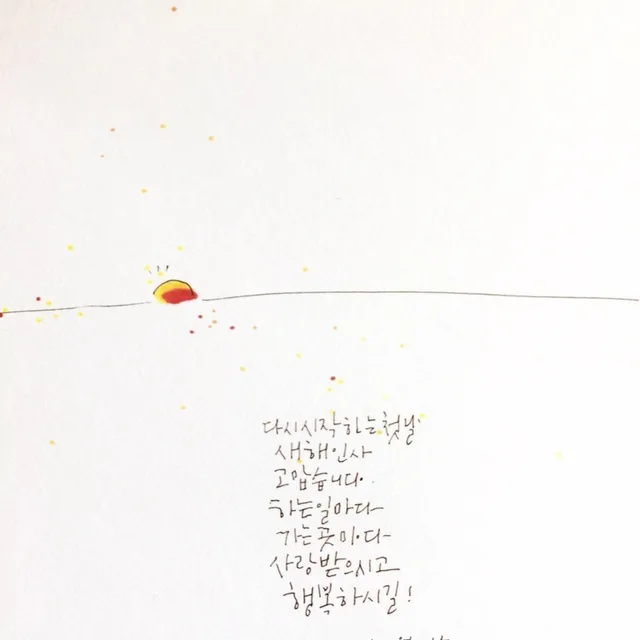 다시시작하는첫날
새해인사
고맙습니다.
하는일마다
가는곳마다
사랑받으시고
행복하시길!